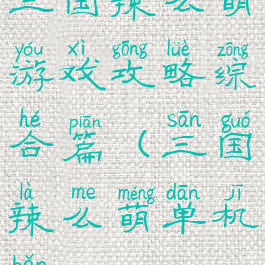 三国辣么萌
yóu xì gōng lüè zōng
游戏攻略综
hé piān sān guó
合篇（三国
là me méng dān jī
辣么萌单机
bǎn